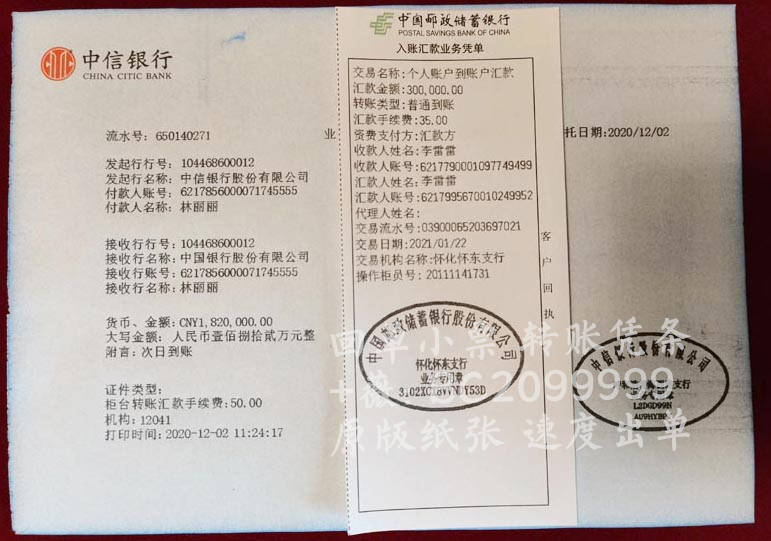 中信银行
CHINA CITIC BANK
流水号: 650140271
业
托日期:2020/12/02
发起行行号: 104468600012
发起行名称: 中信银行股份有限公司
付款人账号: 6217856000071745555
付款人名称: 林丽丽
接收行行号: 104468600012
接收行名称: 中国银行股份有限公司
接收行账号: 6217856000071745555
接收行名称: 林丽丽
货币、金额: CNY1,820,000.00
大写金额: 人民币壹佰捌拾贰万元整
附言: 次日到账
证件类型:
柜台转账汇款手续费:50.00
机构: 12041
打印时间: 2020-12-02 11:24:17
中国邮政储蓄银行
POSTAL SAVINGS BANK OF CHINA
入账汇款业务凭单
交易名称: 个人账户到账户汇款
汇款金额: 300,000.00
转账类型: 普通到账
汇款手续费: 35.00
资费支付方: 汇款方
收款人姓名: 李雷雷
收款人账号: 6217790001097749499
汇款人姓名: 李雷雷
汇款人账号: 6217995670010249952
代理人姓名:
交易流水号: 03900065203697021
交易日期: 2021/01/22
交易机构名称: 怀化怀东支行
操作柜员号: 20111141731
客户回执
中国邮政储蓄银行股份有限公司
怀化怀东支行
业务专用章
中信银行股份有限公司
支行
L2DGD99N
回单小票 转账凭条
2099999
原版纸张 速度出单